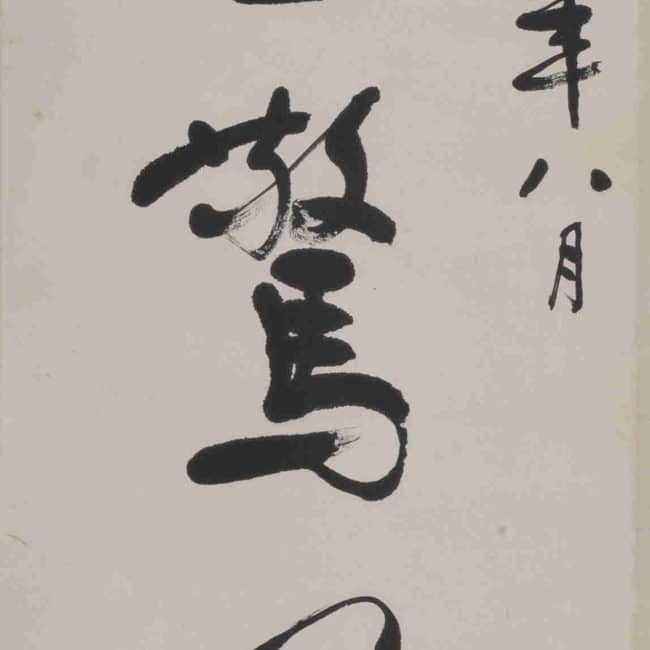 年八月
驚